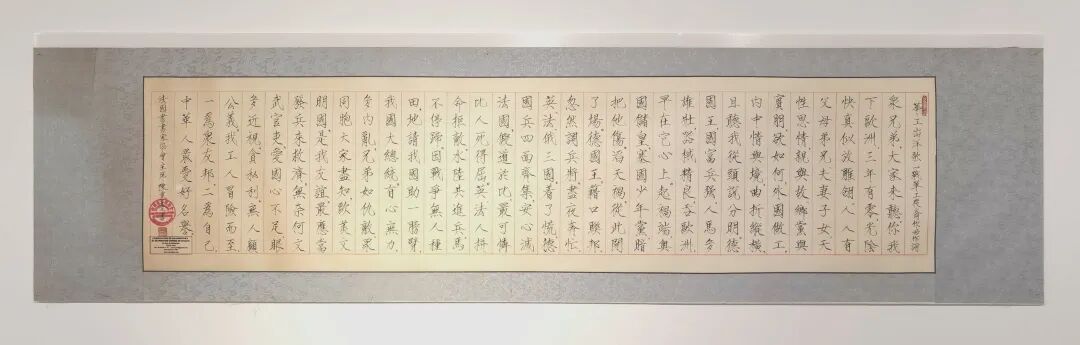 華工出洋歌
衆兄弟，大家來聽，你我
下歐洲，三年有零，光陰
快真似放雕翎，人人有
父母弟兄夫妻子女天
性恩情，親與故鄉黨與
賓朋，欲如何外國做工，
内中情與境曲折縱橫，
且聽我從頭說分明，德
國王，國富兵强，人馬多
雄壯，器械精良，吞歐洲
早在它心上，起禍端奥
國儲皇，塞國少年黨，暗
把他傷，滔天禍從此開
了場，德國王藉口聯邦
忽然調兵將，晝夜奔忙，
英法俄三國着了慌，德
國兵四面齊集，安心滅
法國，假道於比最可憐
比人死得屈，英法人拼
命拒敵，水陸共進，兵馬
不停蹄，因戰爭無人種
田地，請我國助一膀臂，
我國大總統有心無力，
多内亂，兄弟如仇敵，衆
同胞大家盡知，歐美文
明國，是我交誼最應當
發兵來救濟，無奈何文
武官吏，愛國心不足，眼
多近視，貪私利，無人顧
公義，我工人冒險而至
一爲衆友邦，二爲自己，
中華人最愛好名譽。
法國書畫家協會主席